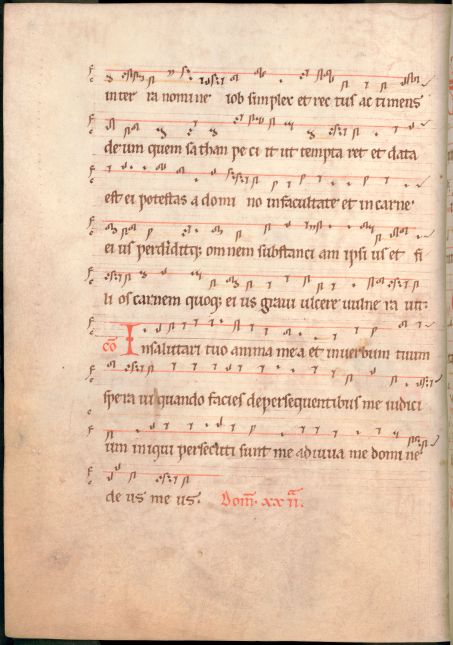 in ter ra nomine iob simplex et rec tus ac timens
deum quem sathan pe ci it ut tempta ret et data
est ei potestas a domi no in facultate et in carne.
ei us perdiditq; omnem substanci am ipsi us et fi
li os carnem quoq; ei us gravi ulcere vulne ra vit:
cō Insalutari tuo anima mea et in verbum tuum
spera vi quando facies depersequentibus me iudici
um iniqui persecuti sunt me adiuva me domine
de us me us. Dom̄. xx ii.